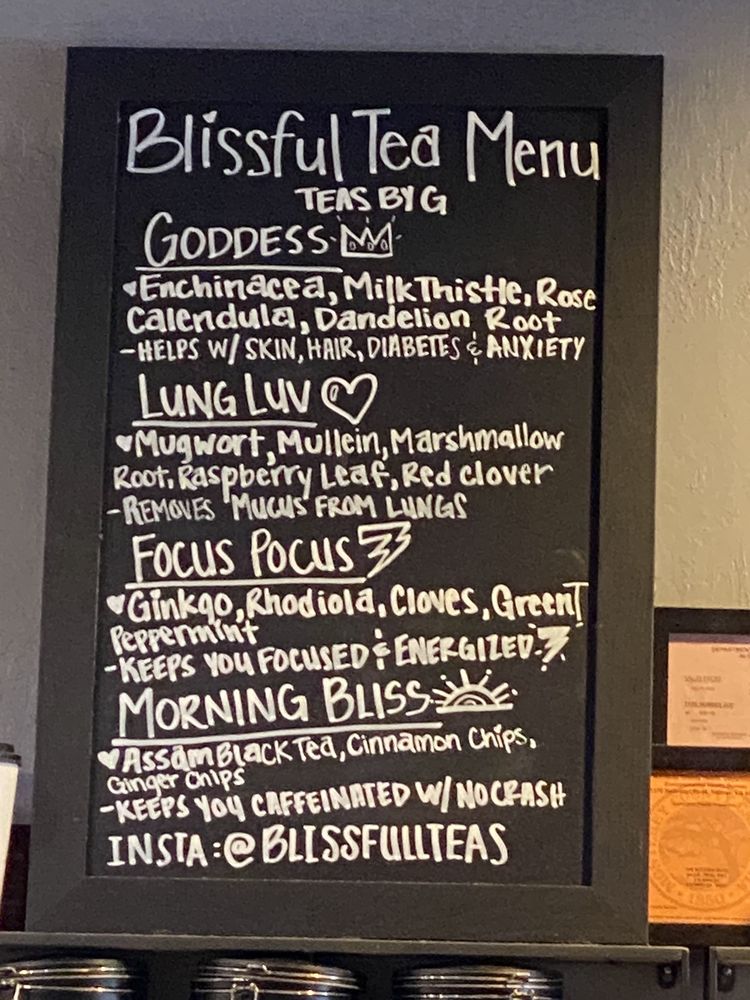 Blissful Tea Menu
TEAS BY G
GODDESS
Enchinacea, Milk Thistle, Rose
Calendula, Dandelion Root
-HELPS W/ SKIN, HAIR, DIABETES & ANXIETY
LUNG LUV
Mugwort, Mullein, Marshmallow
Root, Raspberry Leaf, Red clover
-REMOVES MUCUS FROM LUNGS
FOCUS POCUS
Ginkgo, Rhodiola, Cloves, GreenT
Peppermint
-KEEPS YOU FOCUSED & ENERGIZED
MORNING BLISS
ASSAM BLACK Tea, Cinnamon Chips,
Ginger Chips
-KEEPS YOU CAFFEINATED W/ NO CRASH
INSTA:@BLISSFULLTEAS